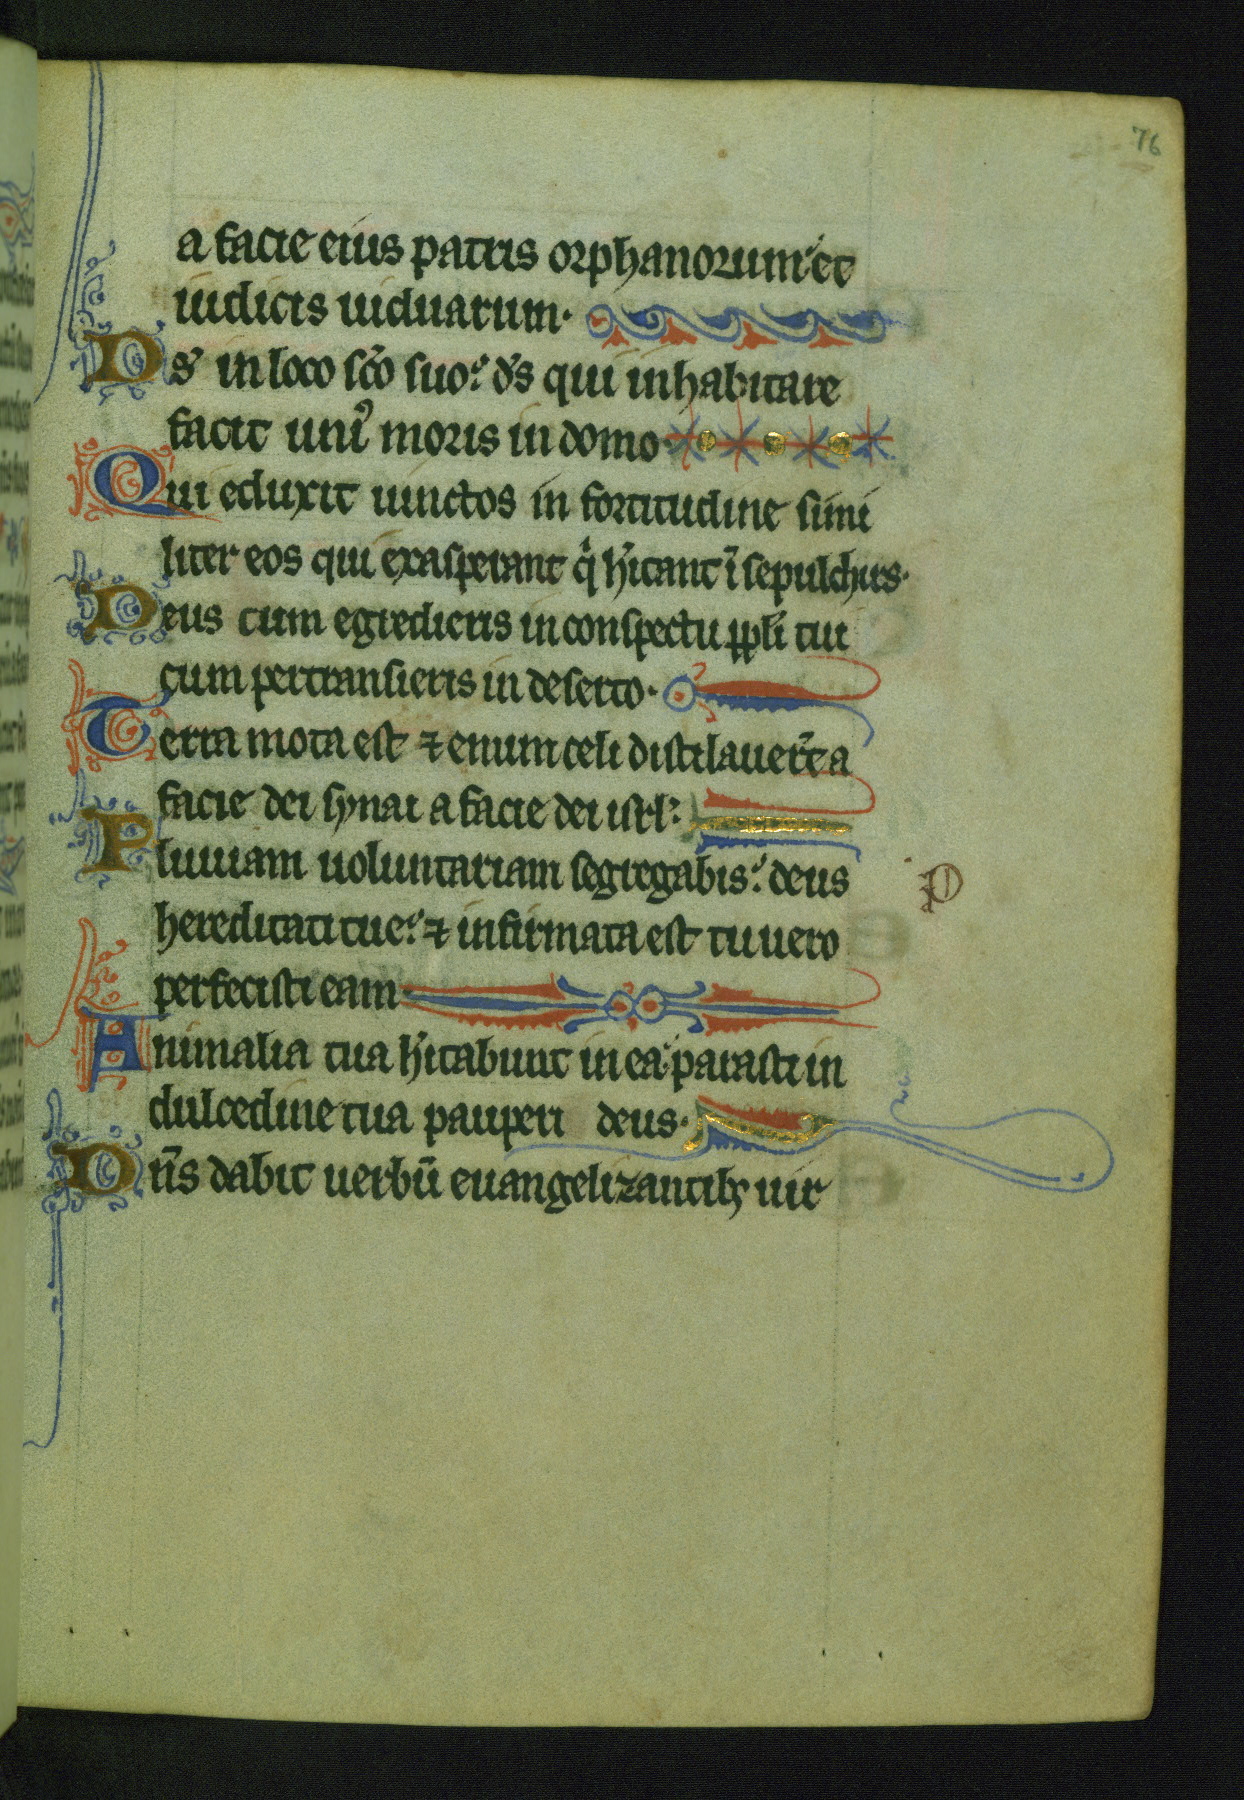 76
a facie eius patris orphanorum et
iudicis uiduarum.
Ds̄ in loco sc̄o suo: ds̄ qui inhabitare
facit uniꝰ moris in domo
Qui eduxit uinctos in fortitudine simi
liter eos qui exasperant qͥ hītant ī sepulchris.
Deus cum egredieris in conspectu ppl̄i tui
cum pertransieris in deserto.
Terra mota est ⁊ enum celi distilauer̄t a
facie dei synai a facie dei isrl̄:
Pluuiam uoluntariam segregabis: deus
P
hereditati tue: ⁊ infirmata est tu uero
perfecisti eam.
Animalia tua hītabunt in ea: parasti in
dulcedine tua pauperi deus.
Dn̄s dabit uerbū euangelizantibꝫ uir